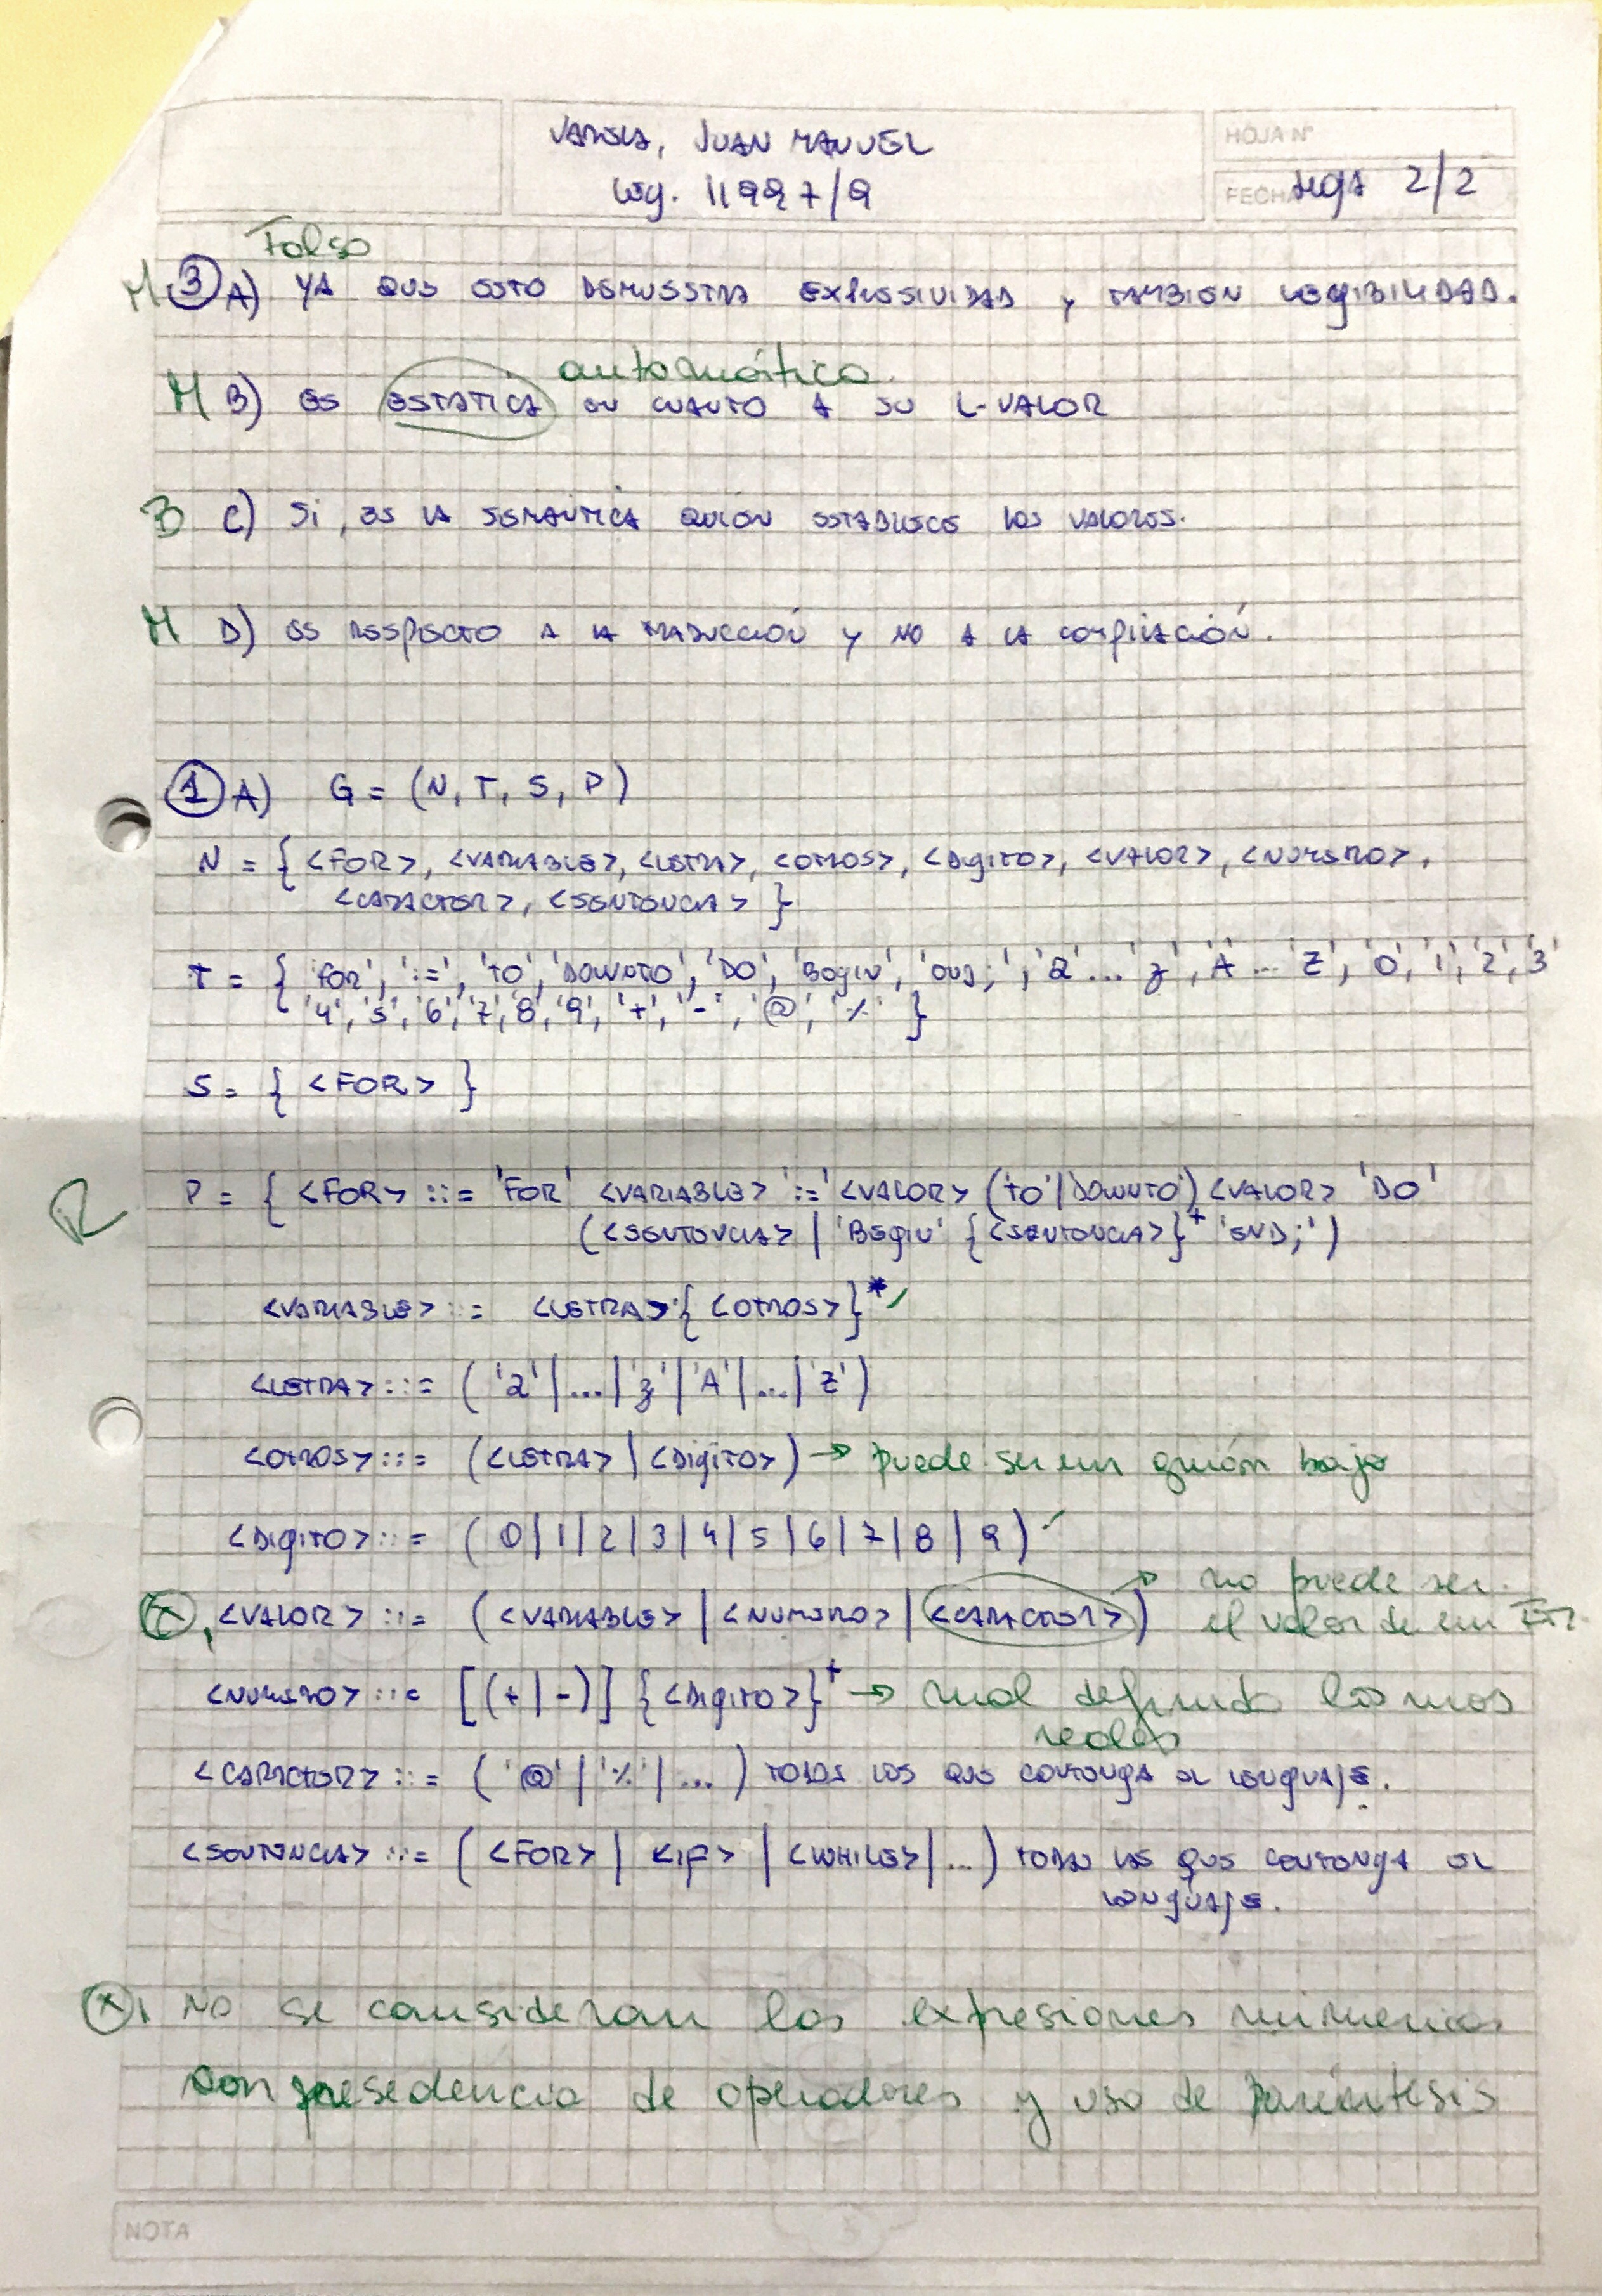 VARELA, JUAN MANUEL
HOJA Nº
Leg. 11997/9
FECHA
HOJA 2/2
Falso
M 3 A) YA QUE ESTO DEMUESTRA EXPRESIVIDAD Y TAMBIEN LEGIBILIDAD.
automática
M B) ES ESTATICA EN CUANTO A SU L-VALOR
B C) Si, ES LA SEMANTICA QUIÉN ESTABLECE LOS VALORES.
M D) ES RESPECTO A LA TRADUCCIÓN Y NO A LA COMPILACIÓN.
1 A) G = (N, T, S, P)
N = { <FOR>, <VARIABLE>, <LETRA>, <OTROS>, <DIGITO>, <VALOR>, <NUMERO>,
<CARACTER>, <SENTENCIA> }
T = { 'FOR', ':=', 'TO', 'DOWNTO', 'DO', 'BEGIN', 'END;', 'a' ... 'z', 'A' ... 'Z', '0', '1', '2', '3'
'4', '5', '6', '7', '8', '9', '+', '-', '@', '%' }
S = { <FOR> }
R
P = { <FOR> ::= 'FOR' <VARIABLE> ':=' <VALOR> ('TO'|'DOWNTO') <VALOR> 'DO'
(<SENTENCIA> | 'BEGIN' {<SENTENCIA>}+ 'END;')
<VARIABLE> ::= <LETRA> {<OTROS>}* ✓
<LETRA> ::= ('a'|...|'z'|'A'|...|'Z')
<OTROS> ::= (<LETRA> | <DIGITO>) → puede ser un guión bajo
<DIGITO> ::= (0|1|2|3|4|5|6|7|8|9) ✓
no puede ser
* <VALOR> ::= (<VARIABLE> | <NUMERO> | <CARACTER>) el valor de un
<NUMERO> ::= [(+|-)] {<DIGITO>}+ → mal definido los nros
reales
<CARACTER> ::= ('@' | '%' | ...) TODOS LOS QUE CONTENGA EL LENGUAJE.
<SENTENCIA> ::= (<FOR> | <IF> | <WHILE> | ...) TODAS LAS QUE CONTENGA EL
LENGUAJE.
* No se consideran las expresiones numericas
con presedencia de operadores y uso de paréntesis
NOTA